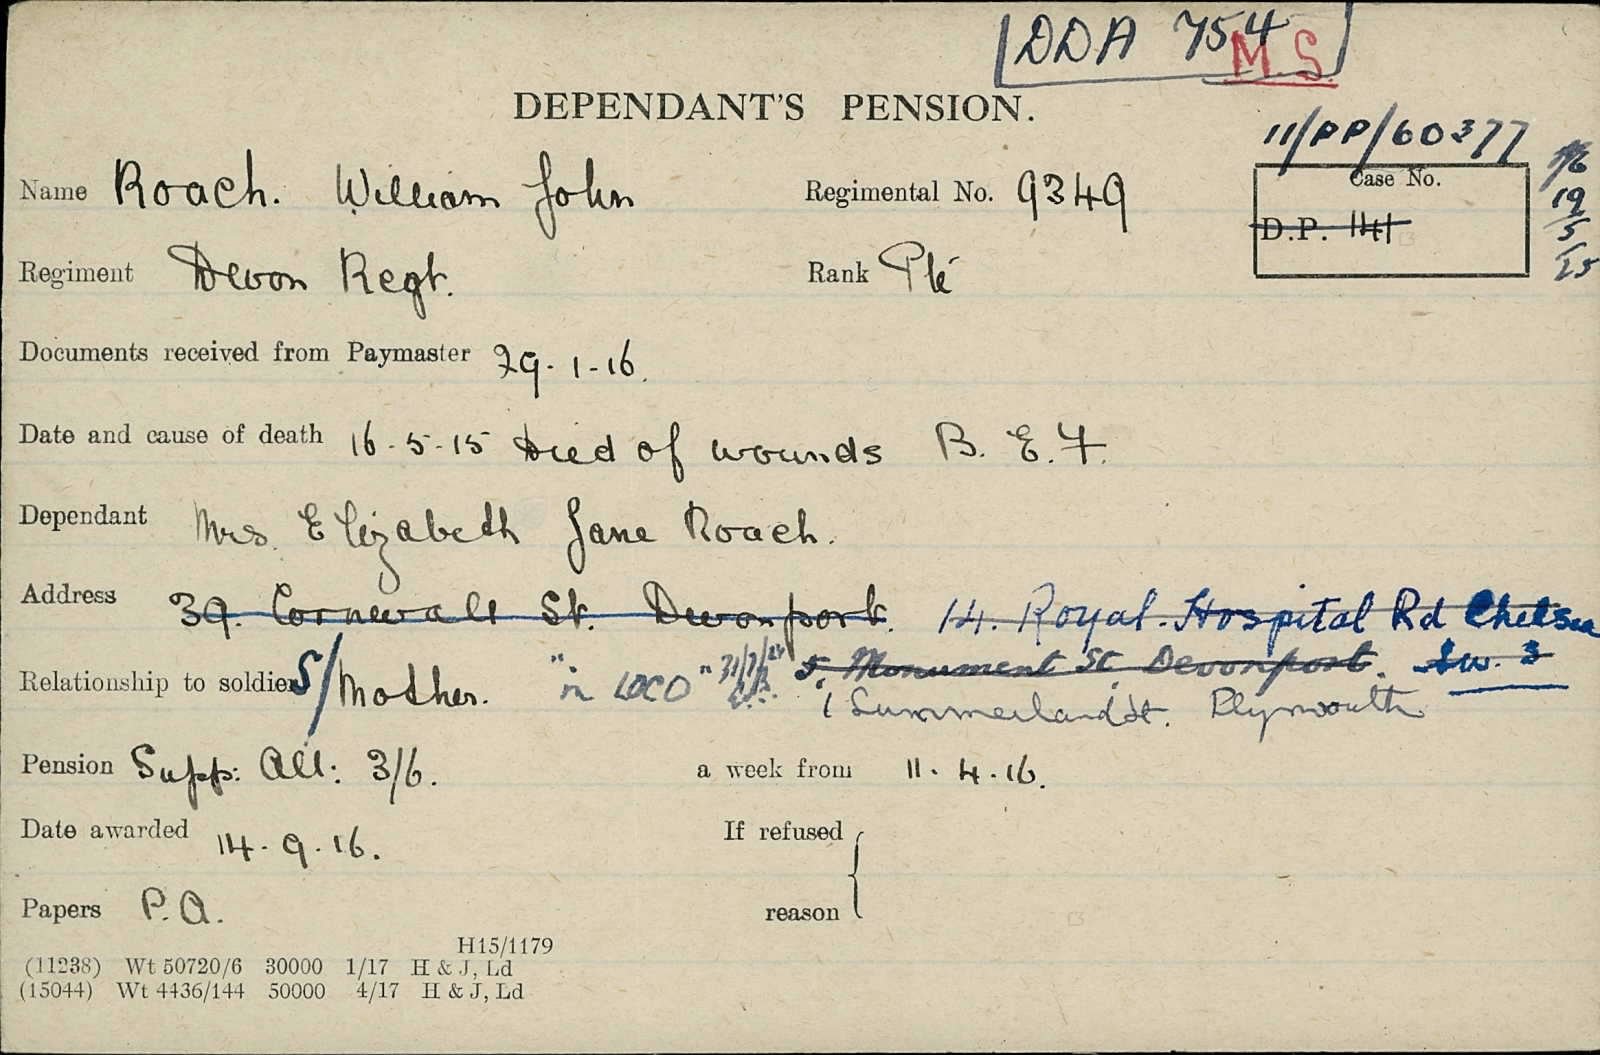 DDA 754
M.S.
DEPENDANT'S PENSION.
11/PP/60377
Name Roach. William John Regimental No. 9349 Case No.
D.P. 1141
19/5/25
Regiment Devon Regt. Rank Pte
Documents received from Paymaster 29-1-16.
Date and cause of death 16-5-15 Died of wounds B.E.F.
Dependant Mrs. Elizabeth Jane Roach.
Address 39. Cornwall St. Devonport. 14. Royal Hospital Rd Chelsea
5. Monument St. Devonport. S.W. 3
Relationship to soldier S/Mother. "in LOCO" 31/7/24
1 Summerland St. Plymouth
Pension Supp: All: 3/6. a week from 11.4.16.
Date awarded 14.9.16. If refused
Papers P.A. reason
H15/1179
(11238) Wt 50720/6 30000 1/17 H & J, Ld
(15044) Wt 4436/144 50000 4/17 H & J, Ld